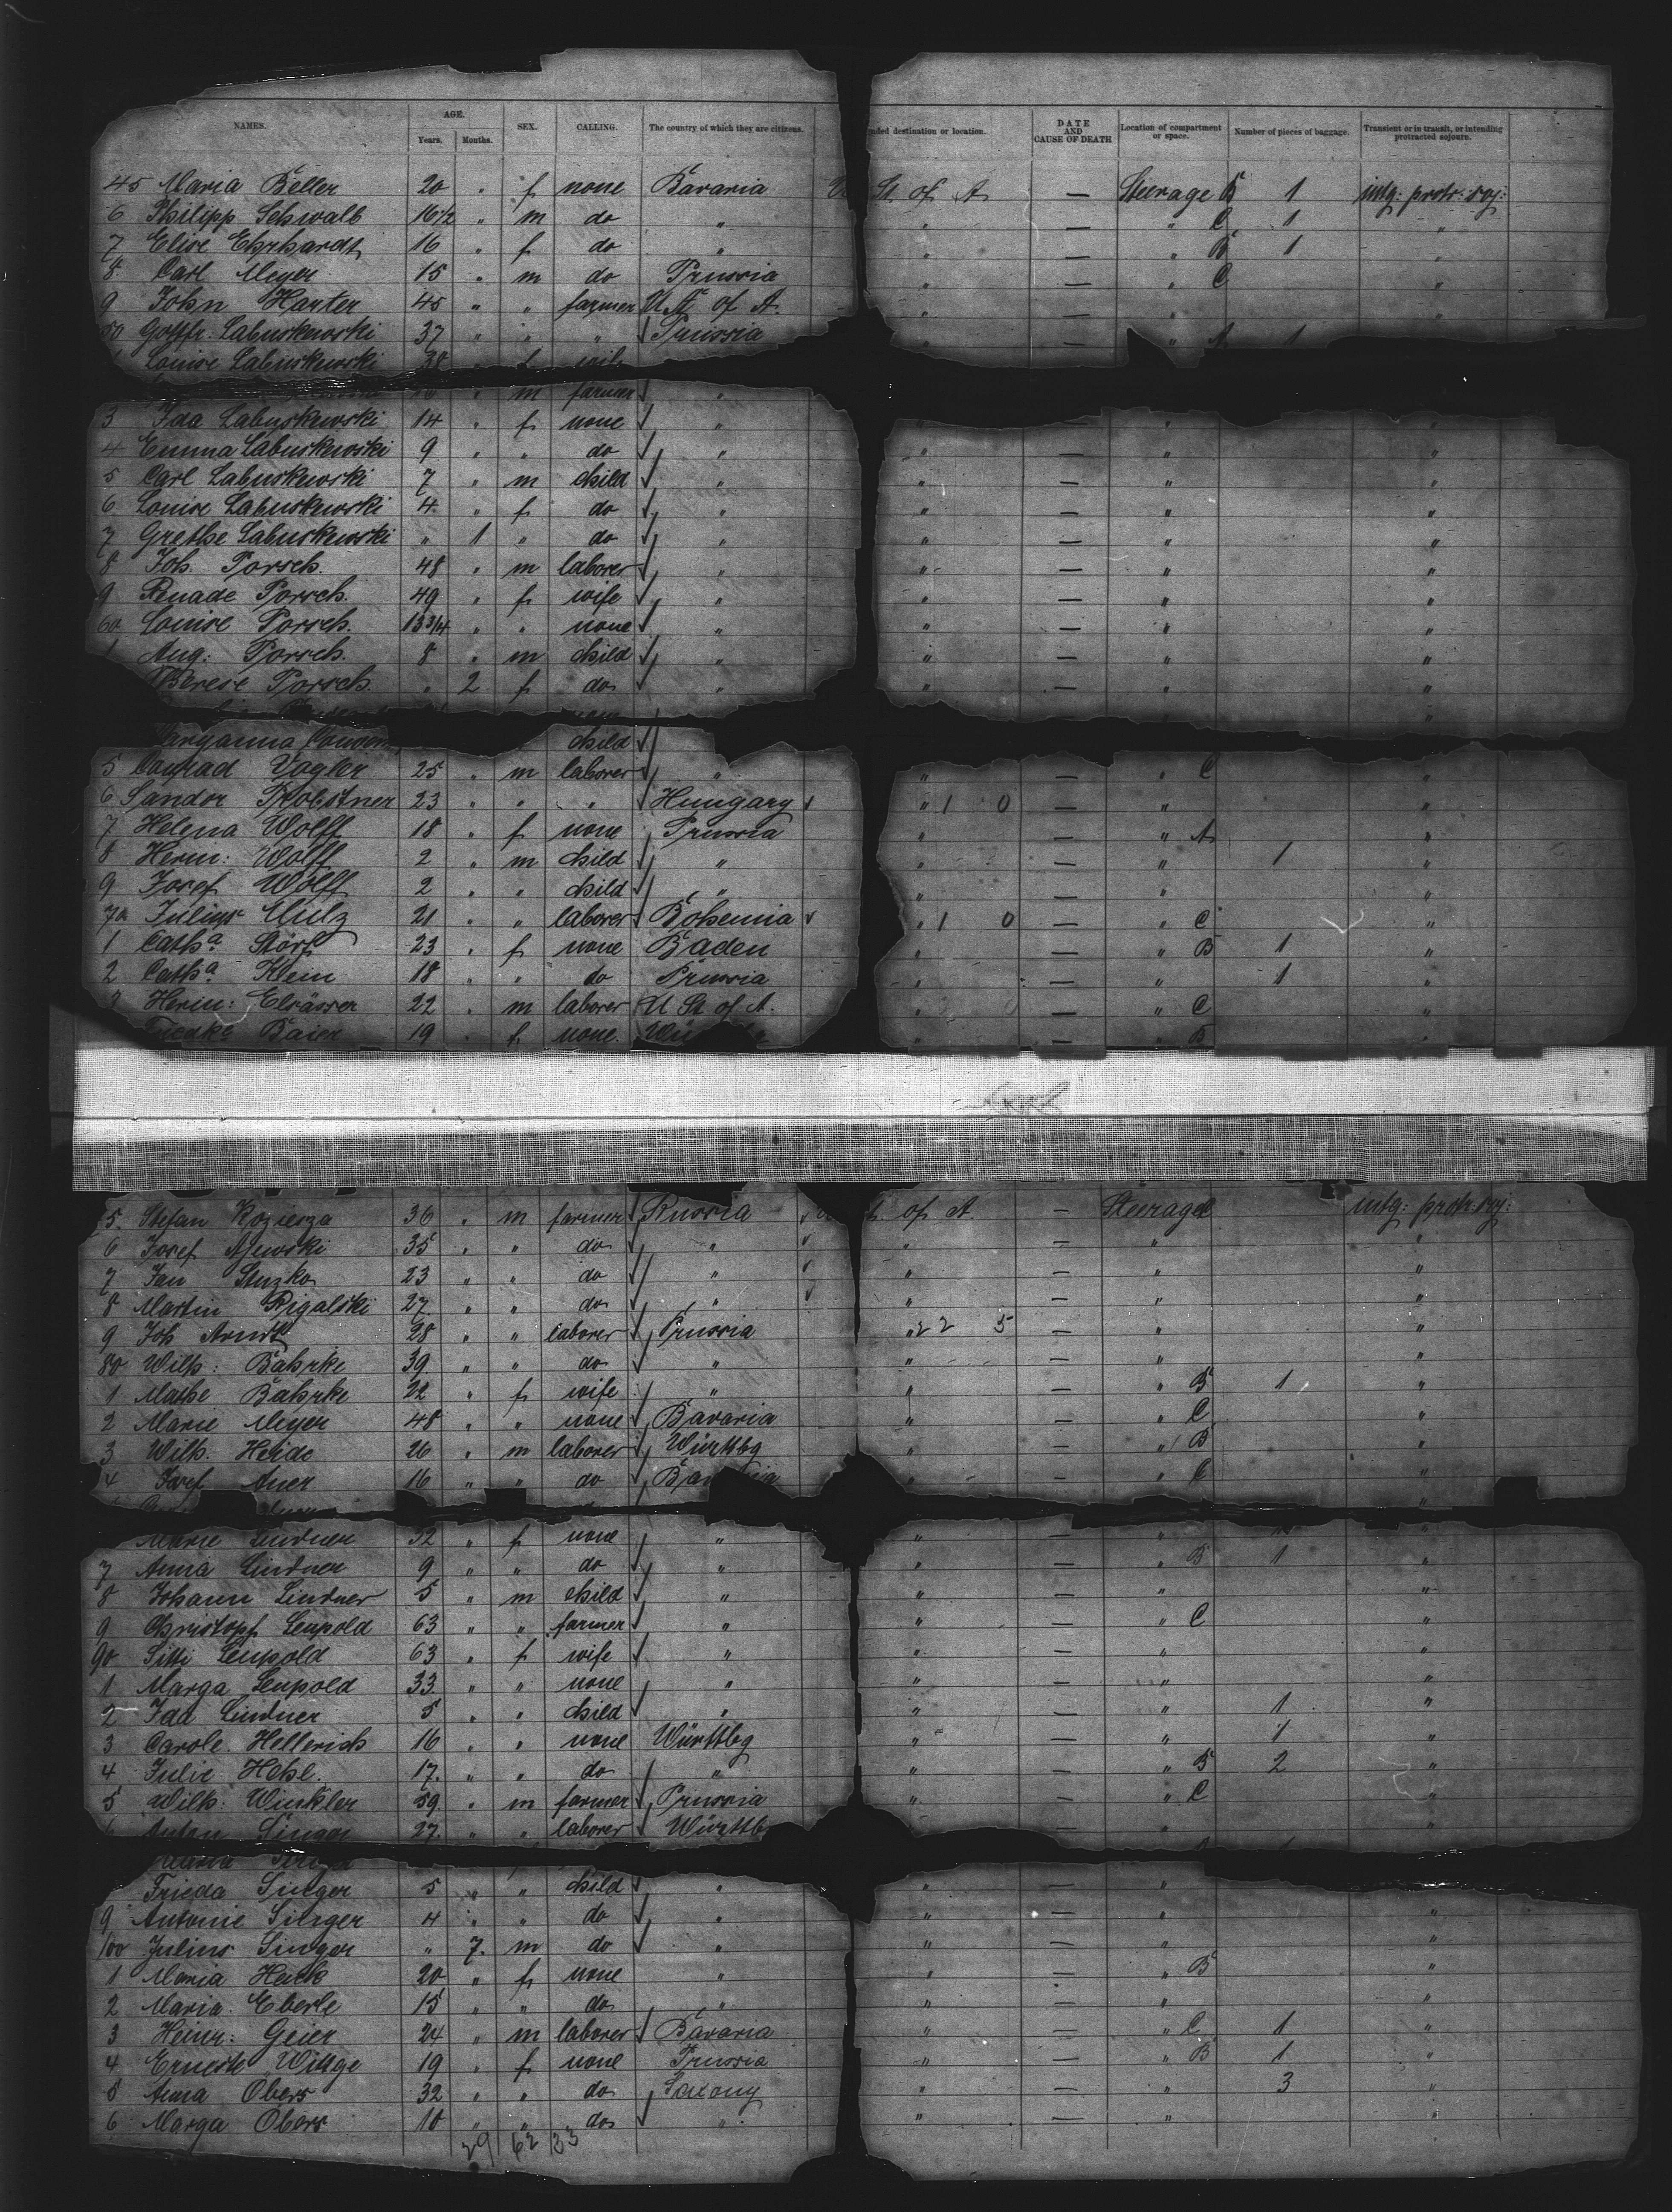 NAMES. AGE. SEX. CALLING. The country of which they are citizens. nded destination or location. DATE AND CAUSE OF DEATH Location of compartment or space. Number of pieces of baggage. Transient or in transit, or intending protracted sojourn.
Years. Months.
45 Maria Beller 20 " f none Bavaria St. of A — Steerage B 1 intg: protr: soj:
6 Philipp Schwalb 16 1/2 " m do " " — " C 1 "
7 Elise Ehrhardt 16 " f do " " — " B 1 "
8 Carl Meyer 15 " m do Prussia " — " C "
9 John Harter 45 " " farmer U St. of A. " — " "
50 Gottfr. Labuskewski 37 " " " Prussia " — " A 1
1 Louise Labuskewski 38 " f wife
m farmer "
3 Ida Labuskewski 14 " f none " " — " "
4 Emma Labuskewski 9 " " do " " — " "
5 Carl Labuskewski 7 " m child " " — " "
6 Louise Labuskewski 4 " f do " " — " "
7 Grethe Labuskewski " 1 " do " " — " "
8 Joh. Porsch. 48 " m laborer " " — " "
9 Porsch. 49 " f wife " " — " "
60 Louise Porsch. 13 3/4 " " none " " — " "
1 Aug: Porsch. 8 " m child " " — " "
Porsch. " 2 f do " " — " "
none
child
5 Conrad Vogler 25 " m laborer " " — " C "
6 Sandor 23 " " " Hungary " 1 0 — " "
7 Helena Wolff 18 " f none Prussia " — " A "
8 Herm: Wolff 2 " m child " " — " 1 "
9 Josef Wolff 2 " " child " " — " "
70 Julius 21 " " laborer Bohemia " 1 0 — " C "
1 Catha Störf 23 " f none Baden " — " B 1 "
2 Catha Klein 18 " " do Prussia " — " 1 "
3 Herm: Elsässer 22 " m laborer U St. of A. " — " C "
Baier 19 " f none " — " B "
5. Stefan Koziesza 36 " m farmer Russia of A. — Steerage C intg: protr: soj:
6 Josef Ajewski 35 " " do " " — " "
7 Jan 23 " " do " " — " "
8 Martin Rigalski 27. " " do " " — " "
9 Joh Arndt 28 " " laborer Prussia " 22 5 — " "
80 Wilh: Bahrke 39 " " do " " — " "
1 Mathe Bahrke 22 " f wife " " — " B 1 "
2 Marie Meyer 48 " " none Bavaria " — " C "
3 Wilh. Heide 26 " m laborer Württbg " — " B "
4 Josef Auer 16 " " do " — " C "
Marie Lindner 32 " f none " " — " "
7 Anna Lindner 9 " " do " " — " B 1 "
8 Johann Lindner 5 " m child " " — " "
9 Christopf Leupold 63 " " farmer " " — " C "
90 Sitti Leupold 63 " f wife " " — " "
1 Marga Leupold 33 " " none " " — " "
2 Ida Lindner 5 " " child " " — " 1 "
3 Carole. Hellerich 16 " " none Württbg " — " 1 "
4 Julie Hehl. 17. " " do " " — " B 2 "
5 Wilh: Winkler 59 " m farmer Prussia " — " C "
Anton Singer 27. " " laborer Württb " — " "
Maria
Frieda Singer 5 " " child " " — " "
9 Antonie Singer 4 " " do " " — " "
100 Julius Singer " 7. m do " " — " "
1 Maria Heck 20 " f none " " — " B "
2 Maria. Eberle 15 " " do " " — " "
3 Heinr: Geier 24 " m laborer Bavaria " — " C 1 "
4 Ernest Wittge 19 " f none Prussia " — " B 1 "
5 Anna Obers 32 " " do Saxony " — " 3 "
6 Marga Obers 10 " " do " " — " "
29 62 33